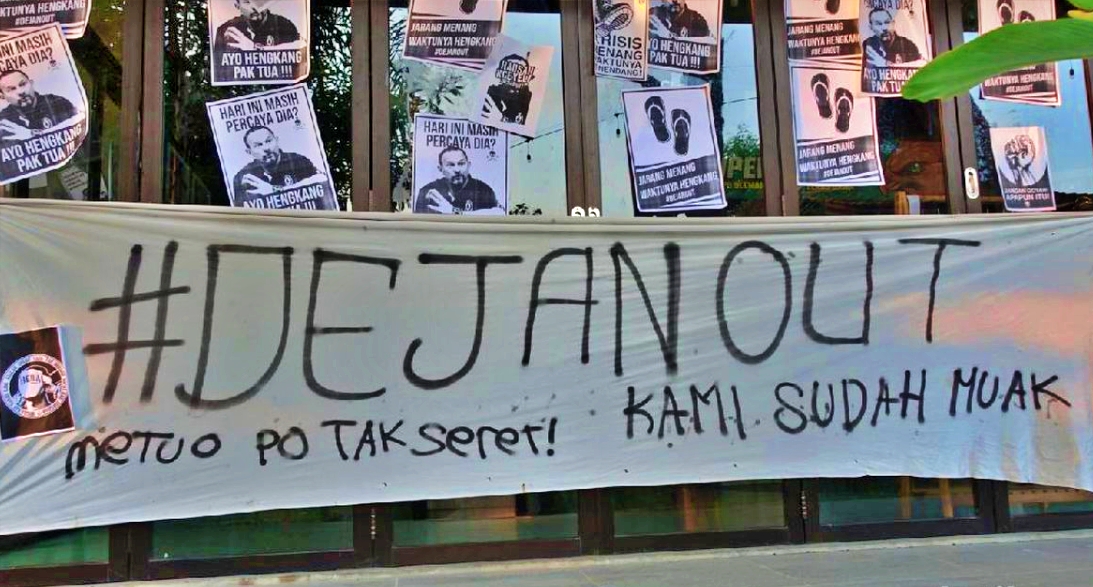 JARANG MENANG
WAKTUNYA HENGKANG
#DEJANOUT
INI MASIH
PERCAYA DIA?
AYO HENGKANG
PAK TUA !!!
AYO HENGKANG
PAK TUA !!!
HARI INI MASIH
PERCAYA DIA?
AYO HENGKANG
JARANG MENANG
WAKTUNYA HENGKANG
#DEJANOUT
HARI INI MASIH
PERCAYA DIA?
AYO HENGKANG
PAK TUA !!!
JARANG MENANG
WAKTUNYA HENGKANG
#DEJANOUT
JARANG MENANG
WAKTUNYA HENGKANG
#DEJANOUT
PERCAYA DIA?
AYO HENGKANG
PAK TUA !!!
JARANG MENANG
WAKTUNYA HENGKANG
#DEJANOUT
WAKTUNYA HENGKANG
#DEJANOUT
APAPUN ITU!
#DEJAN OUT
METUO PO TAK SERET!
KAMI SUDAH MUAK